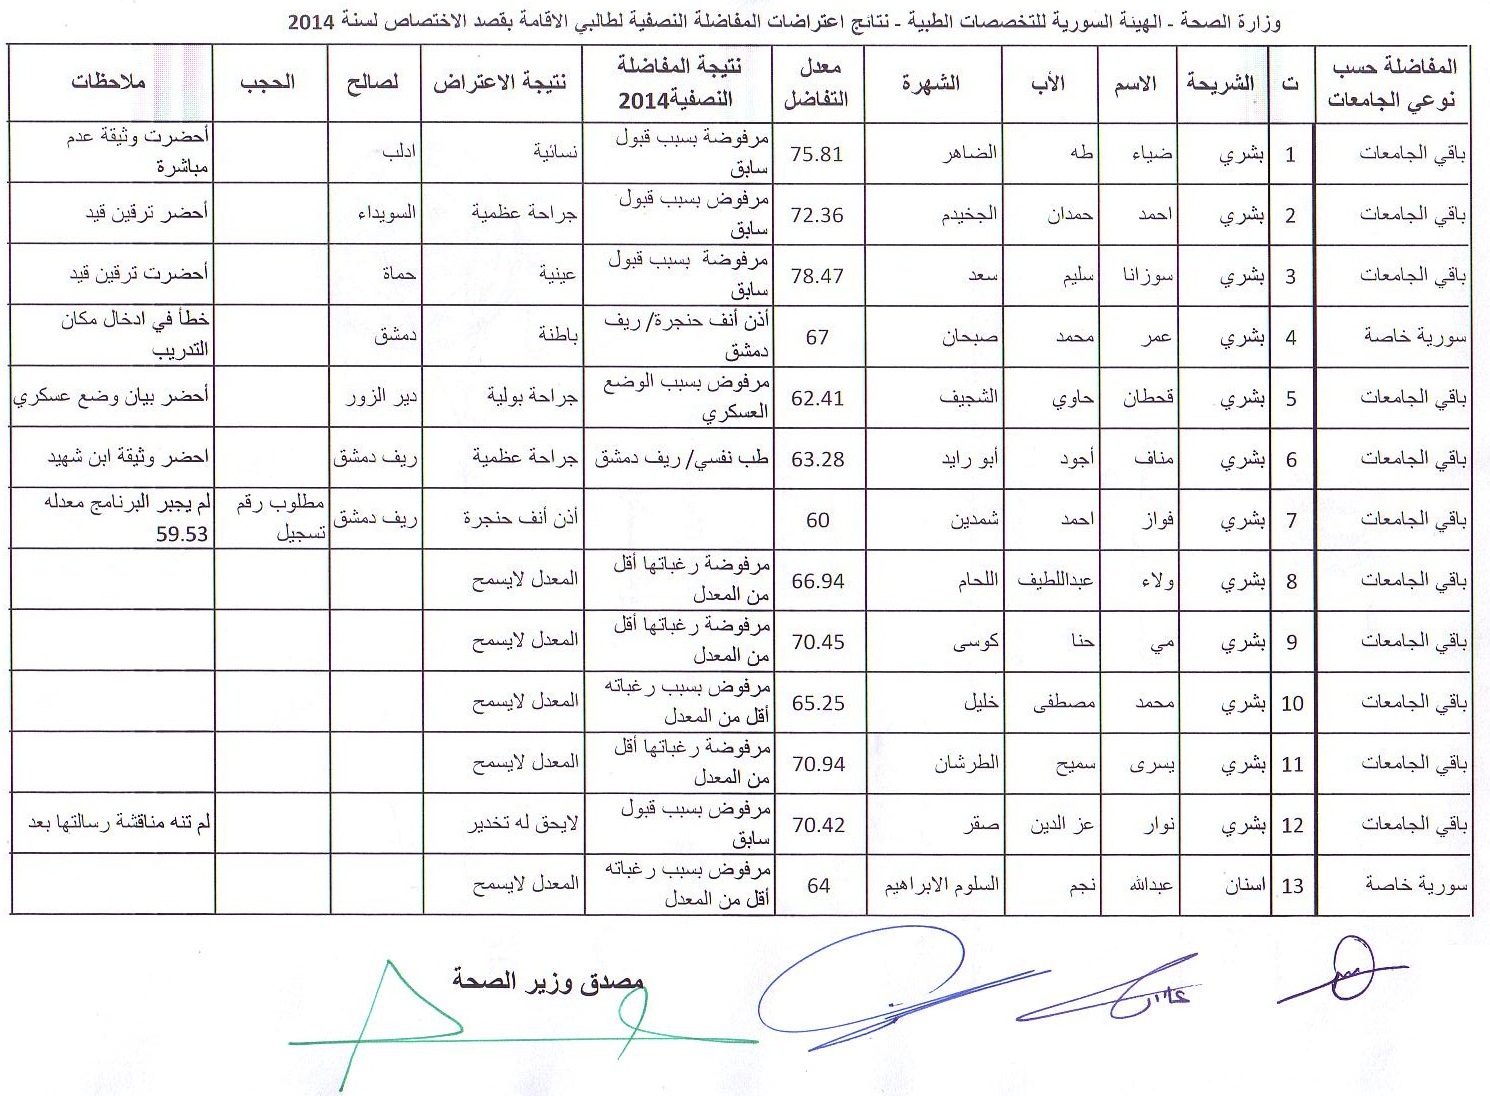 وزارة الصحة - الهيئة السورية للتخصصات الطبية - نتائج اعتراضات المفاضلة النصفية لطالبي الاقامة بقصد الاختصاص لسنة 2014
المفاضلة حسب نوعي الجامعات ت الشريحة الاسم الأب الشهرة معدل التفاضل نتيجة المفاضلة النصفية2014 نتيجة الاعتراض لصالح الحجب ملاحظات
باقي الجامعات 1 بشري ضياء طه الضاهر 75.81 مرفوضة بسبب قبول سابق نسائية ادلب أحضرت وثيقة عدم مباشرة
باقي الجامعات 2 بشري احمد حمدان الجخيدم 72.36 مرفوض بسبب قبول سابق جراحة عظمية السويداء أحضر ترقين قيد
باقي الجامعات 3 بشري سوزانا سليم سعد 78.47 مرفوضة بسبب قبول سابق عينية حماة أحضرت ترقين قيد
سورية خاصة 4 بشري عمر محمد صبحان 67 أذن أنف حنجرة/ ريف دمشق باطنة دمشق خطأ في ادخال مكان التدريب
باقي الجامعات 5 بشري قحطان حاوي الشجيف 62.41 مرفوض بسبب الوضع العسكري جراحة بولية دير الزور أحضر بيان وضع عسكري
باقي الجامعات 6 بشري مناف أجود أبو رايد 63.28 طب نفسي/ ريف دمشق جراحة عظمية ريف دمشق احضر وثيقة ابن شهيد
باقي الجامعات 7 بشري فواز احمد شمدين 60 أذن أنف حنجرة ريف دمشق مطلوب رقم تسجيل لم يجبر البرنامج معدله 59.53
باقي الجامعات 8 بشري ولاء عبداللطيف اللحام 66.94 مرفوضة رغباتها أقل من المعدل المعدل لايسمح
باقي الجامعات 9 بشري مي حنا كوسى 70.45 مرفوضة رغباتها أقل من المعدل المعدل لايسمح
باقي الجامعات 10 بشري محمد مصطفى خليل 65.25 مرفوض بسبب رغباته أقل من المعدل المعدل لايسمح
باقي الجامعات 11 بشري يسرى سميح الطرشان 70.94 مرفوضة رغباتها أقل من المعدل المعدل لايسمح
باقي الجامعات 12 بشري نوار عز الدين صقر 70.42 مرفوض بسبب قبول سابق لايحق له تخدير لم تنه مناقشة رسالتها بعد
سورية خاصة 13 اسنان عبدالله نجم السلوم الابراهيم 64 مرفوض بسبب رغباته أقل من المعدل المعدل لايسمح
مصدق وزير الصحة